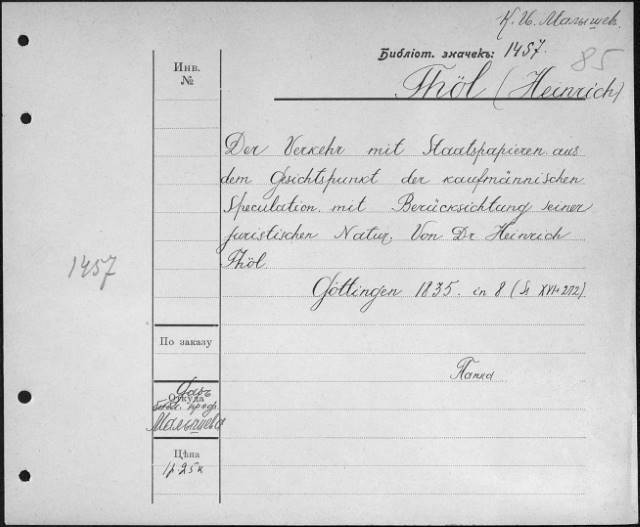 К. И. Малышев.
Библіот. значекъ: 1457.
85
Thöl (Heinrich)
Инв.
№
Der Verkehr mit Staatspapieren aus
dem Gesichtspunkt der kaufmännischen
Speculation mit Berücksichtung seiner
juristischen Natur, Von Dr Heinrich
Thöl.
1457
Göttingen 1835. in 8 (S. XVI+272)
По заказу
Папка
Откуда
библ. проф.
Малышева
Цѣна
1р 25к